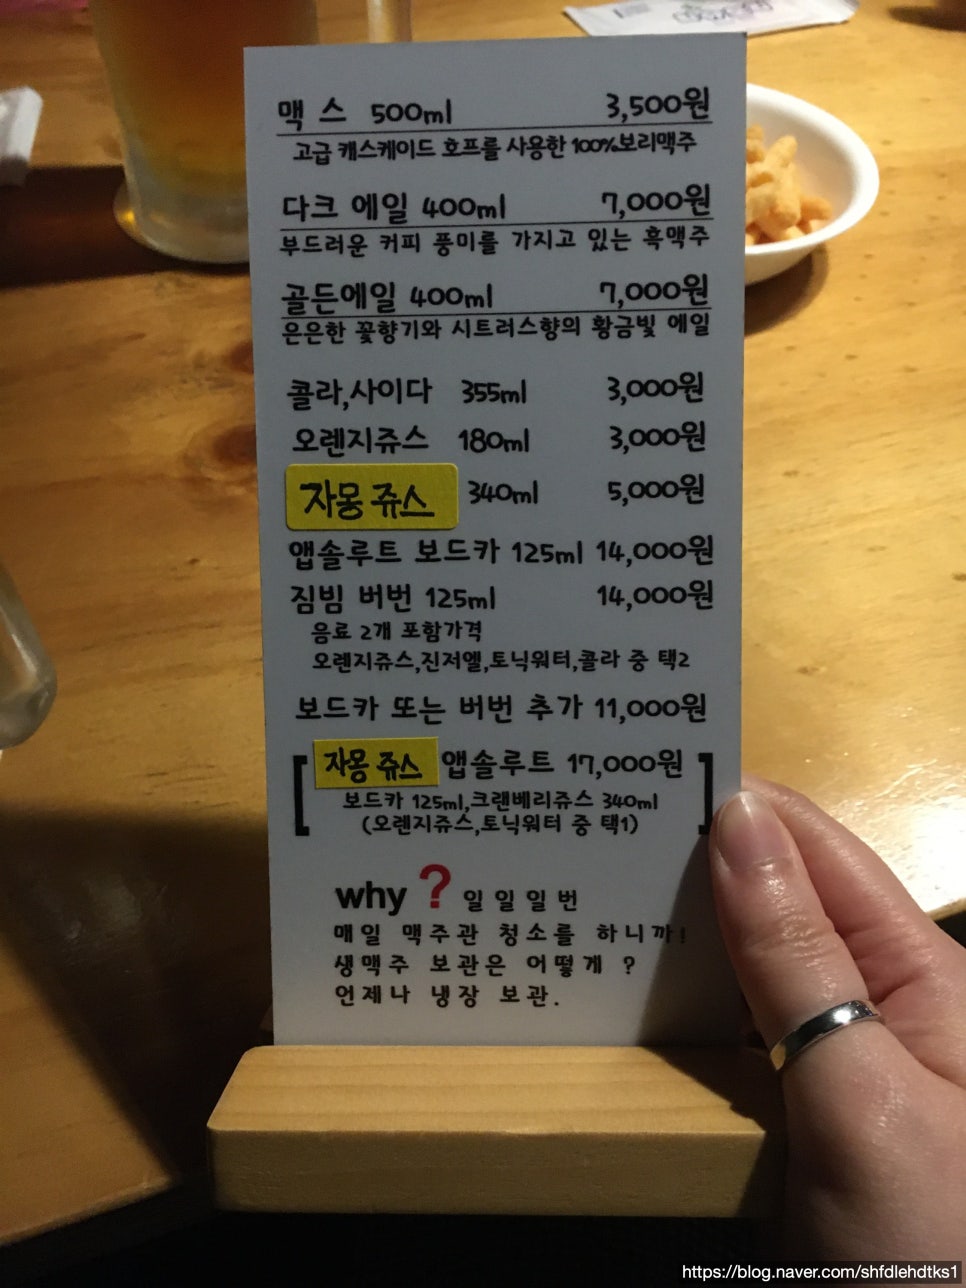 맥 스 500ml 3,500원
고급 캐스케이드 호프를 사용한 100%보리맥주
다크 에일 400ml 7,000원
부드러운 커피 풍미를 가지고 있는 흑맥주
골든에일 400ml 7,000원
은은한 꽃향기와 시트러스향의 황금빛 에일
콜라,사이다 355ml 3,000원
오렌지쥬스 180ml 3,000원
자몽 쥬스 340ml 5,000원
앱솔루트 보드카 125ml 14,000원
짐빔 버번 125ml 14,000원
음료 2개 포함가격
오렌지쥬스,진저엘,토닉워터,콜라 중 택2
보드카 또는 버번 추가 11,000원
[자몽 쥬스 앱솔루트 17,000원
보드카 125ml,크랜베리쥬스 340ml
(오렌지쥬스,토닉워터 중 택1)]
why ? 일 일 일 번
매일 맥주관 청소를 하니까!
생맥주 보관은 어떻게 ?
언제나 냉장 보관.
https://blog.naver.com/shfdlehdtks1